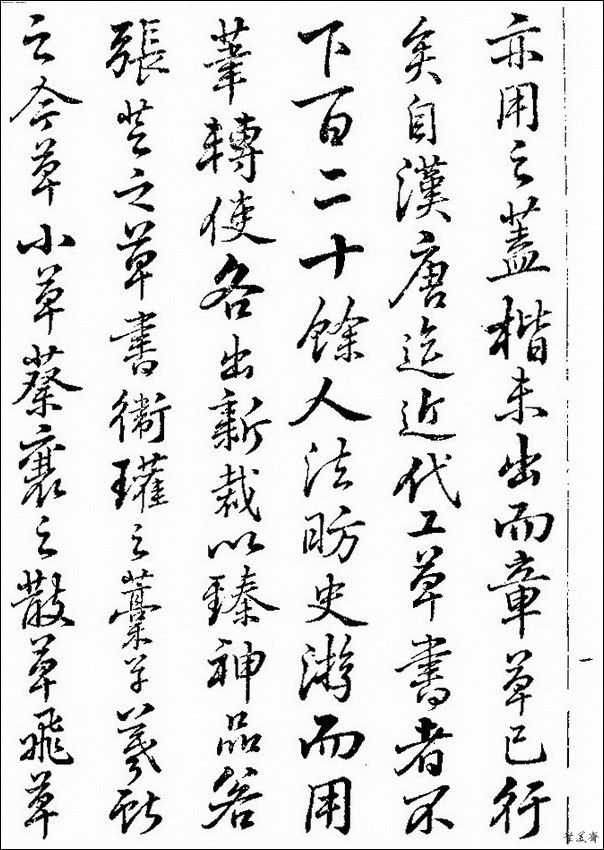 亦用之蓋楷未出而章草已行
矣自漢唐迄近代工草書者不
下百二十餘人法昉史游而用
筆轉使各出新裁以臻神品若
張芝之草書衛瓘之藁草羲獻
之今草小草蔡襄之散草飛草